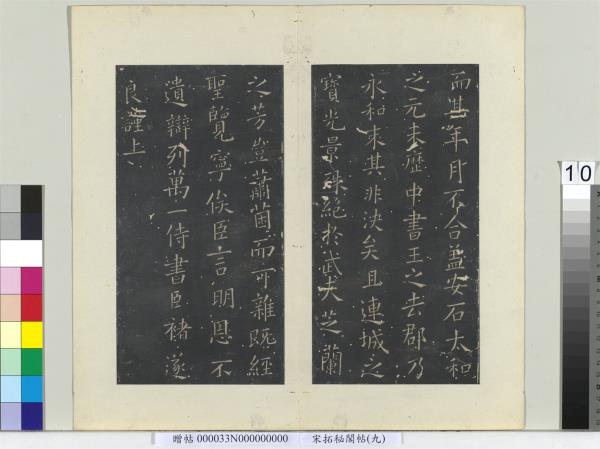 而其年月不合葢安石太和
之元未歷中書王之去郡乃
永和末其非決矣且連城之
寶光景殊絕於武夫芝蘭
之芳豈蕭茵而可雜既經
聖覽寧俟臣言明恩不
遺辯列萬一侍書臣褚遂
良謹上
10
贈帖 000033N000000000 宋拓秘閣帖(九)